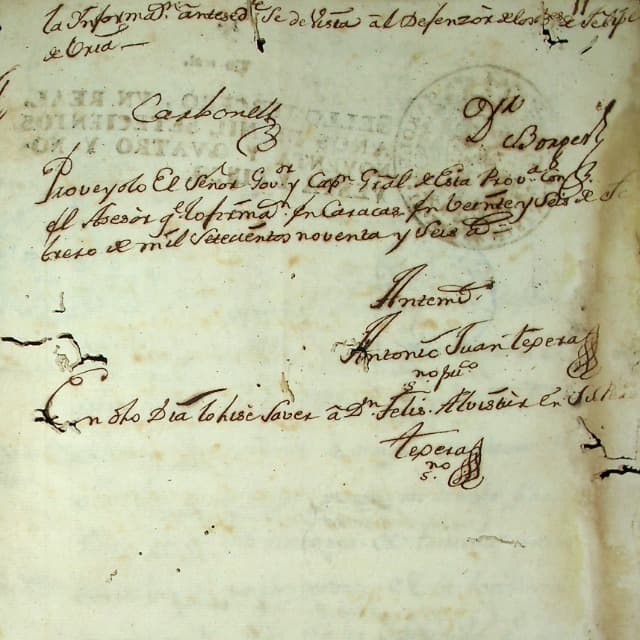 la Informas.n antesed.te Se de Vista ál Defenzòr de los
de Uria —
Carbonell
D.or Borges
Proveyolo El Señor Gov.or y Cap.n Gral de Esta Prov.a con
el Asesòr q.e lo firma.n En Caracas En Veinte y Seis de Fe
brero de mil Setecientos noventa y Seis a.s —
Antemi
Antonio Juan texera
no pu.co
s.
En dho Dia lo hise Saver â D.n Felis
texera
no
s.